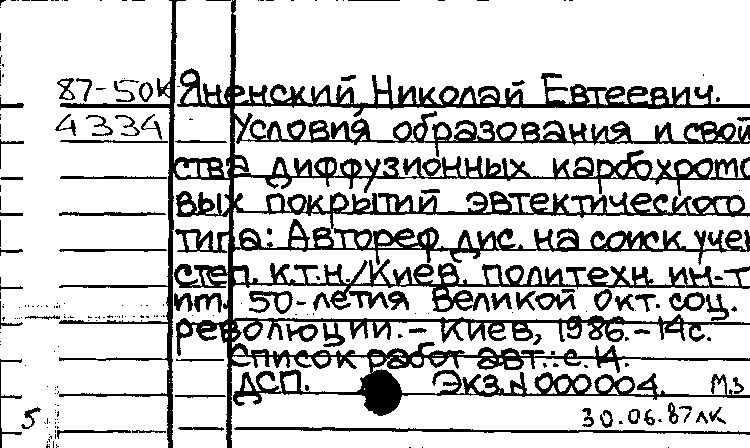 87-50К Яненский, Николай Евтеевич.
4334 Условия образования и свой
ства диффузионных карбохромо
вых покрытий эвтектического
типа: Автореф. дис. на соиск. учен
степ. к.т.н./Киев. политехн. ин-т
им. 50-летия Великой Окт. соц.
революции.- Киев, 1986.-14с.
Список работ авт.: с.14.
ДСП. Экз.N 000004. М.З
5 30.06.87лк